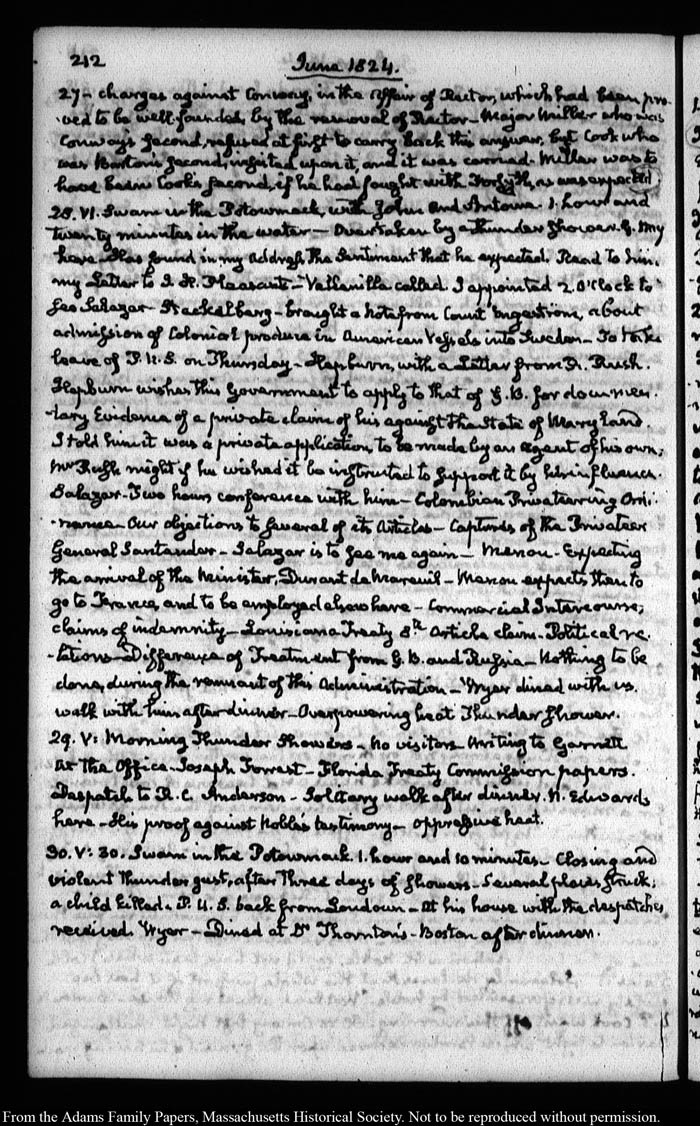 212
June 1824.
27 - charges against Conway, in the affair of Rector, which had been pro-
-ved to be well founded, by the removal of Rector - Major Miller who was
Conway's second, refused at first to carry back this answer, but Cook who
was Barton's second, insisted upon it, and it was carried. Miller was to
have been Cook's second, if he had fought with Forsyth, as was expected
28. VI. Swam in the Potowmack, with John and Antoine. 1. hour and
twenty minutes in the water - Overtaken by a thunder shower. G. Ivy
here. Has found in my Address the Sentiment that he expected. Read to him.
my Letter to J. H. Pleasants - Vallenilla called. I appointed 2. O'Clock to
see Salazar - Stackelberg - brought a Note from Count Engestrom, about
admission of Colonial produce in American Vessels into Sweden - To take
leave of P. U.S. on Thursday - Hepburn, with a Letter from R. Rush.
Hepburn wishes this Government to apply to that of G.B. for documen-
-tary Evidence of a private claim of his against the State of Maryland.
I told him it was a private application, to be made by an agent of his own;
Mr Rush might if he wished it be instructed to support it by his influence.
Salazar - Two hours conference with him - Colombian Privateering Ordi-
-nance - Our objections to several of its Articles - Captures of the Privateer
General Santander - Salazar is to see me again - Menou - Expecting
the arrival of the Minister, Durant de Mareuil - Menou expects then to
go to France, and to be employed elsewhere - Commercial Intercourse;
claims of indemnity - Louisiana Treaty 8th Article claim - Political re-
-lations - Difference of Treatment from G.B. and Russia - Nothing to be
done, during the remnant of this Administration - Wyer dined with us.
walk with him after dinner - Overpowering heat Thunder Shower.
29. V: Morning Thunder Showers - No visitors Writing to Garnett
At the Office - Joseph Forrest - Florida Treaty Commission papers.
Despatch to R. C. Anderson - Solitary walk after dinner. N. Edwards
here - His proof against Noble's testimony - oppressive heat.
30. V: 30. Swam in the Potowmack. 1. hour and 10 minutes - Closing and
violent thunder gust, after three days of showers - Several places struck;
a child killed. P. U.S. back from Loudoun - At his house with the despatches
received. Wyer - Dined at Dr Thornton's - Boston after dinner.
From the Adams Family Papers, Massachusetts Historical Society. Not to be reproduced without permission.